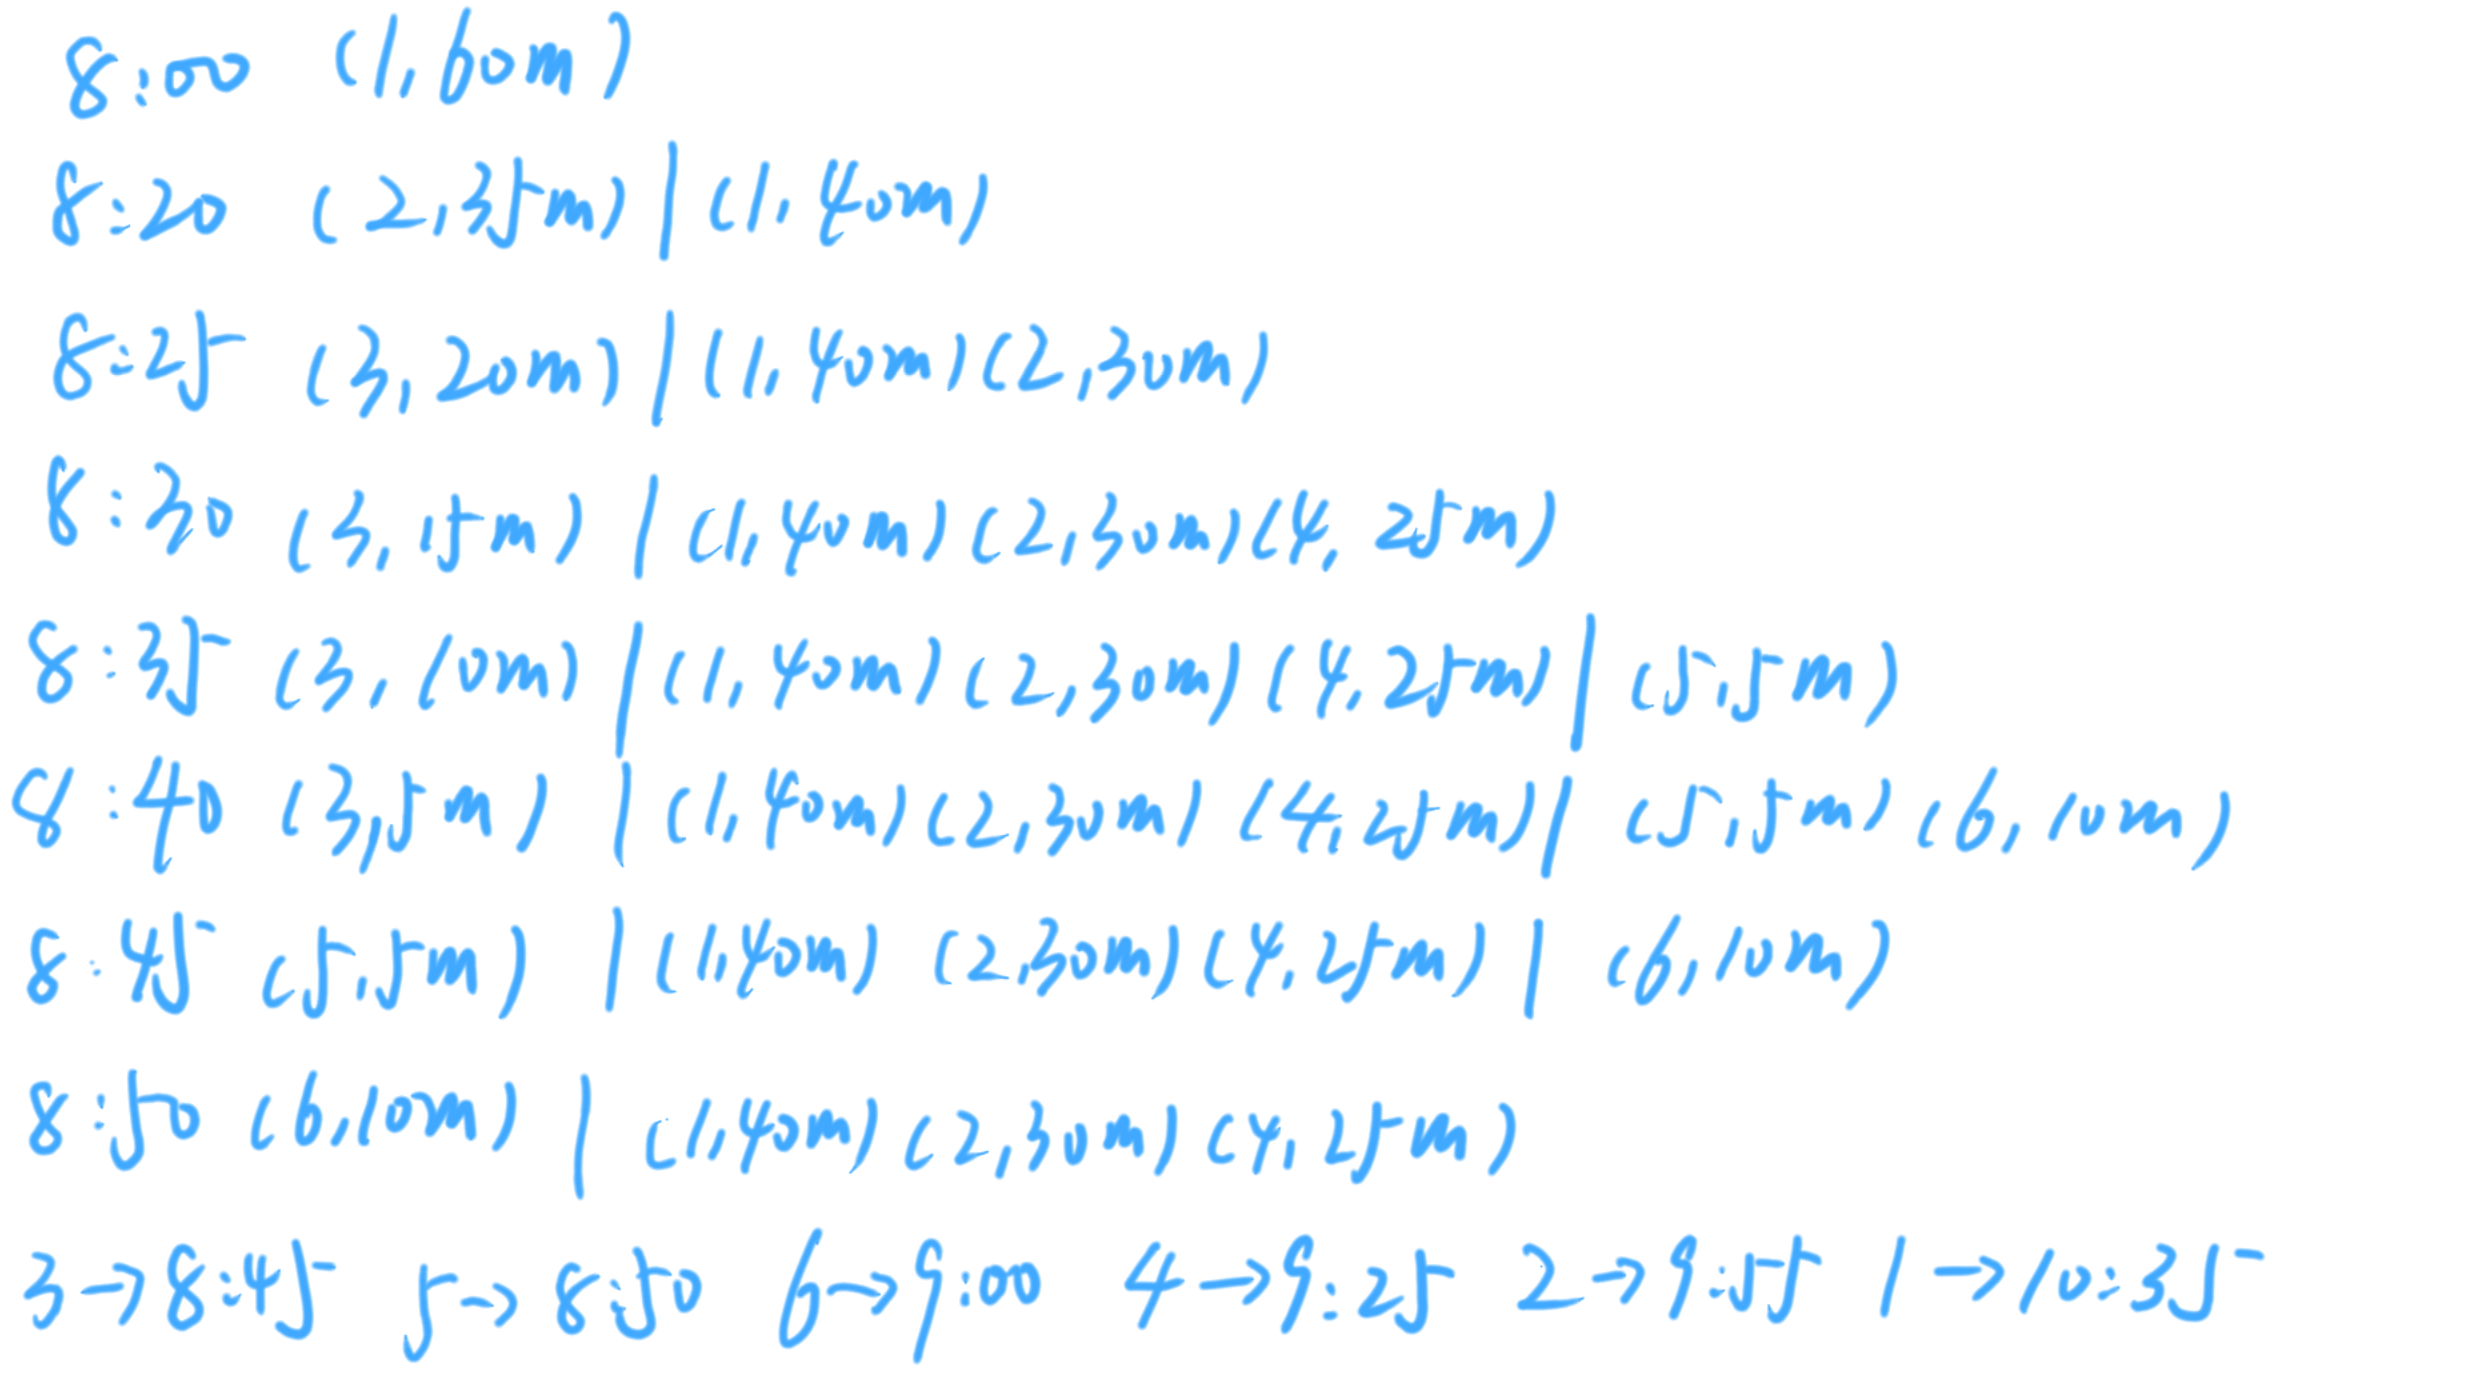 8:00 (1,60m)
8:20 (2,35m) | (1,40m)
8:25 (3,20m) | (1,40m) (2,30m)
8:30 (3,15m) | (1,40m) (2,30m) (4,25m)
8:35 (3,10m) | (1,40m) (2,30m) (4,25m) | (5,5m)
8:40 (3,5m) | (1,40m) (2,30m) (4,25m) | (5,5m) (6,10m)
8:45 (5,5m) | (1,40m) (2,30m) (4,25m) | (6,10m)
8:50 (6,10m) | (1,40m) (2,30m) (4,25m)
3→8:45 5→8:50 6→9:00 4→9:25 2→9:55 1→10:35